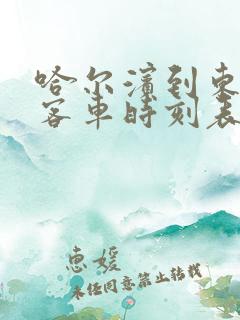 哈尔滨到东
客车时刻表
惠媛
未经同意禁止转载